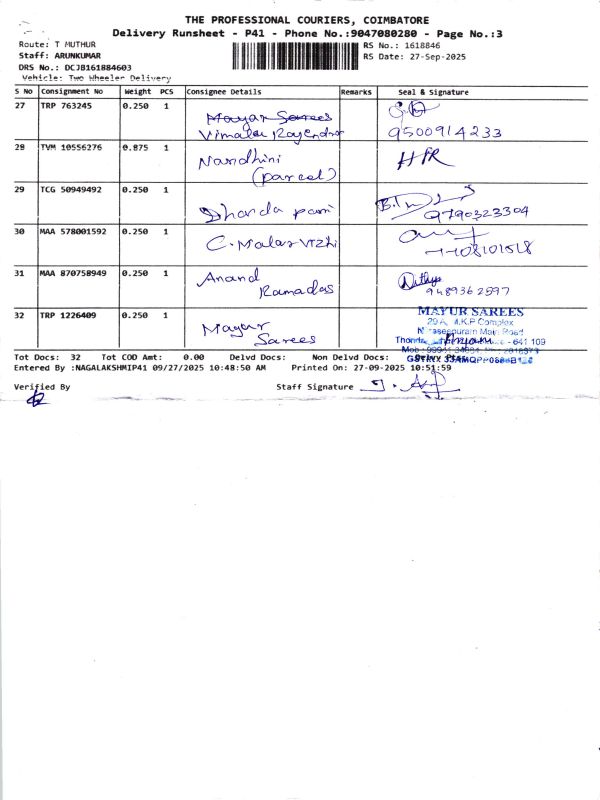 THE PROFESSIONAL COURIERS, COIMBATORE
Delivery Runsheet - P41 - Phone No.:9047080280 - Page No.:3
Route: T MUTHUR
RS No.: 1618846
Staff: ARUNKUMAR
RS Date: 27-Sep-2025
DRS No.: DCJB161884603
Vehicle: Two Wheeler Delivery
S No Consignment No Weight PCS Consignee Details Remarks Seal & Signature
27 TRP 763245 0.250 1
Mayar Sarees
Vimala Rajendran
9500914233
28 TVM 10556276 0.875 1
Nandhini
(parcel)
29 TCG 50949492 0.250 1
Dharda pani
9790323304
30 MAA 578001592 0.250 1
C. Malar vizhi
31 MAA 870758949 0.250 1
Anand
Ramadas
9489362597
32 TRP 1226409 0.250 1
Mayar
Sarees
MAYUR SAREES
29 A, M.K.P Complex
Main Road
- 641 109
Tot Docs: 32 Tot COD Amt: 0.00 Delvd Docs: Non Delvd Docs:
Entered By :NAGALAKSHMIP41 09/27/2025 10:48:50 AM Printed On: 27-09-2025 10:51:59
Verified By
Staff Signature